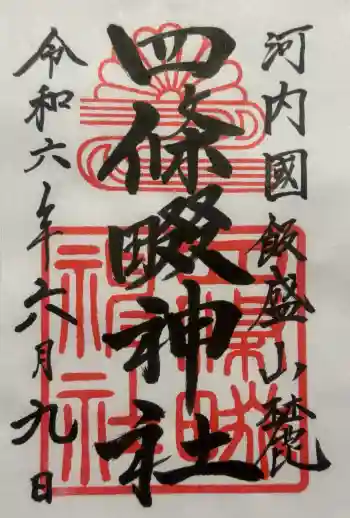 河内國飯盛山麓
四條畷神社
令和六年六月九日